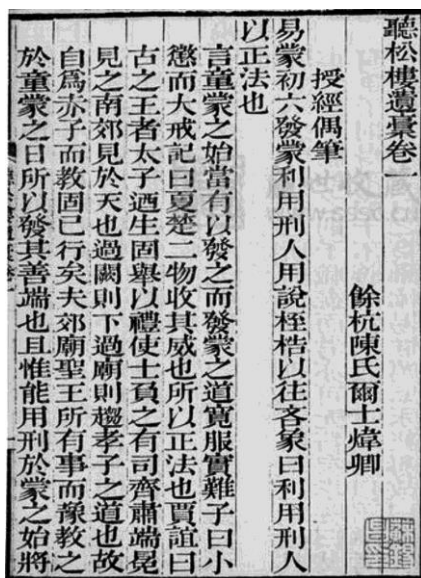 聽松樓遺稾卷一
餘杭陳氏爾士煒卿
授經偶筆
易蒙初六發蒙利用刑人用說桎梏以往吝象曰利用刑人
以正法也
言童蒙之始當有以發之而發蒙之道寬服實難子曰小
懲而大戒記曰夏楚二物收其威也所以正法也賈誼曰
古之王者太子迺生固舉以禮使士負之有司齊肅端冕
見之南郊見於天也過闕則下過廟則趨孝子之道也故
自爲赤子而教固已行矣夫郊廟聖王所有事而豫教之
於童蒙之日所以發其善端也且惟能用刑於蒙之始將